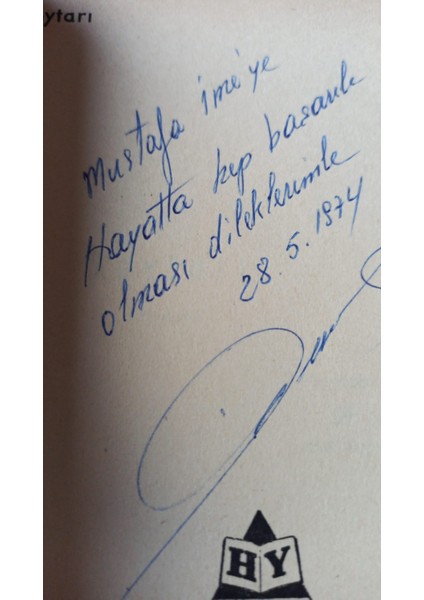 ytarı
Mustafa İme'ye
Hayatta hep başarılı
olması dileklerimle
28.5.1974
HY